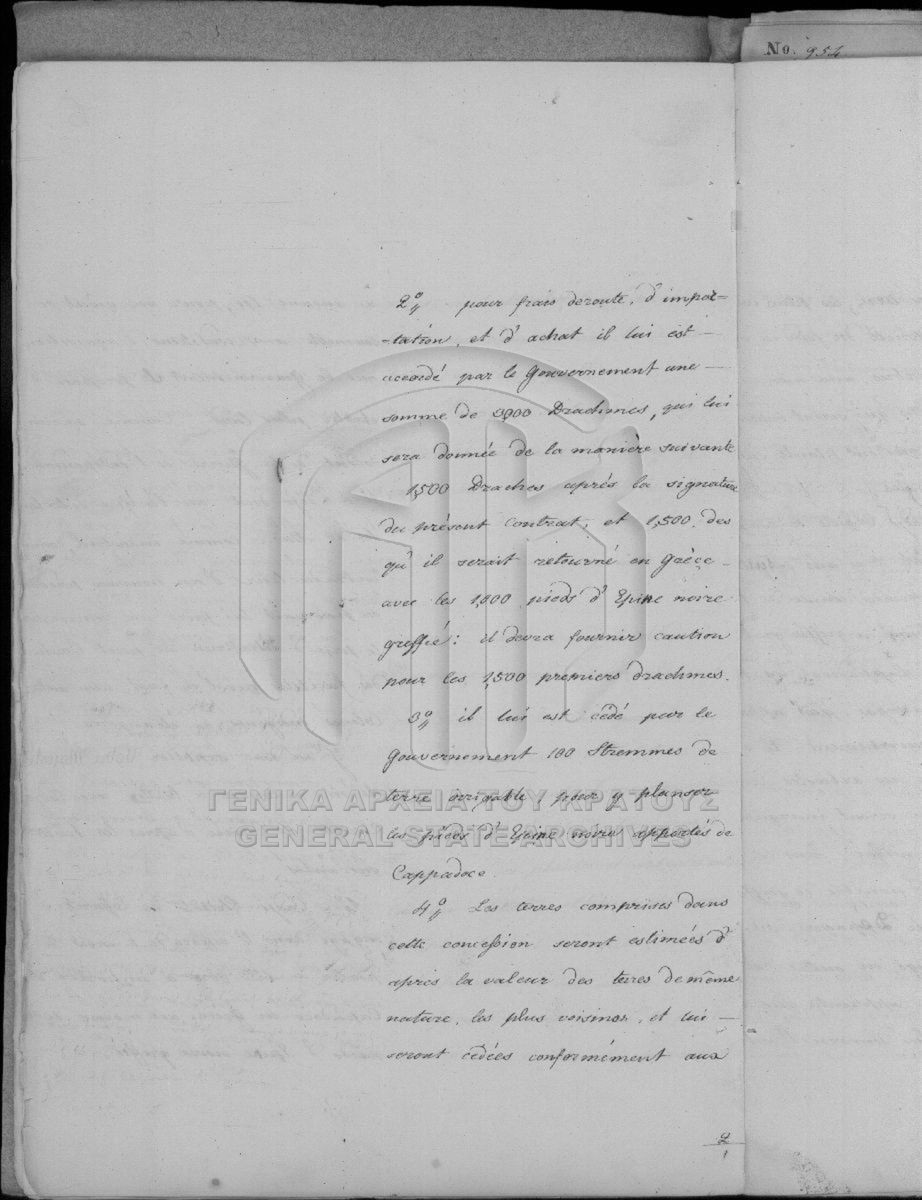 No. 954
2o pour frais de route, d'impor-
-tation, et d'achat il lui est
accordé par le Gouvernement une
somme de 3,000 Drachmes, qui lui
sera donnée de la manière suivante
1,500 Draches après la signature
du présent Contrat, et 1,500, des
qu'il serait retourné en Grèce
avec les 1,000 pieds d'Epine noire
greffié: il devra fournir caution
pour les 1,500 premiers drachmes.
3o il lui est cédé par le
Gouvernement 100 Stremmes de
terre irrigable pour y planser
les pieds d'Epine noire apportés de
Cappadoce.
4o Les terres comprises dans
cette concession seront estimées d'
après la valeur des terres de même
nature, les plus voisines, et lui
seront cédées conformément aux
2
1
ΓΕΝΙΚΑ ΑΡΧΕΙΑ ΤΟΥ ΚΡΑΤΟΥΣ
GENERAL STATE ARCHIVES